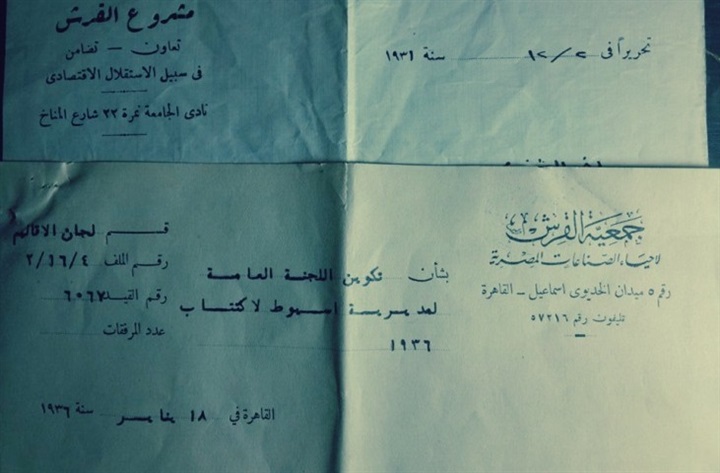 مشروع القرش
تعاون – تضامن
فى سبيل الاستقلال الاقتصادى
نادى الجامعة نمرة ٢٢ شارع المناخ
تحريراً فى ١٢/٢ سنة ١٩٣١
جمعية القرش
لاحياء الصناعات المصرية
رقم ٥ ميدان الخديوى اسماعيل – القاهرة
تليفون رقم ٥٧٢١٦
قسم لجان الاقاليم
رقم الملف ٢/١٦/٤
رقم القيد ٦٠٦٧
عدد المرفقات
بشأن تكوين اللجنة العامة
لمديرية اسيوط لاكتتاب
١٩٣٦
القاهرة في ١٨ يناير سنة ١٩٣٦